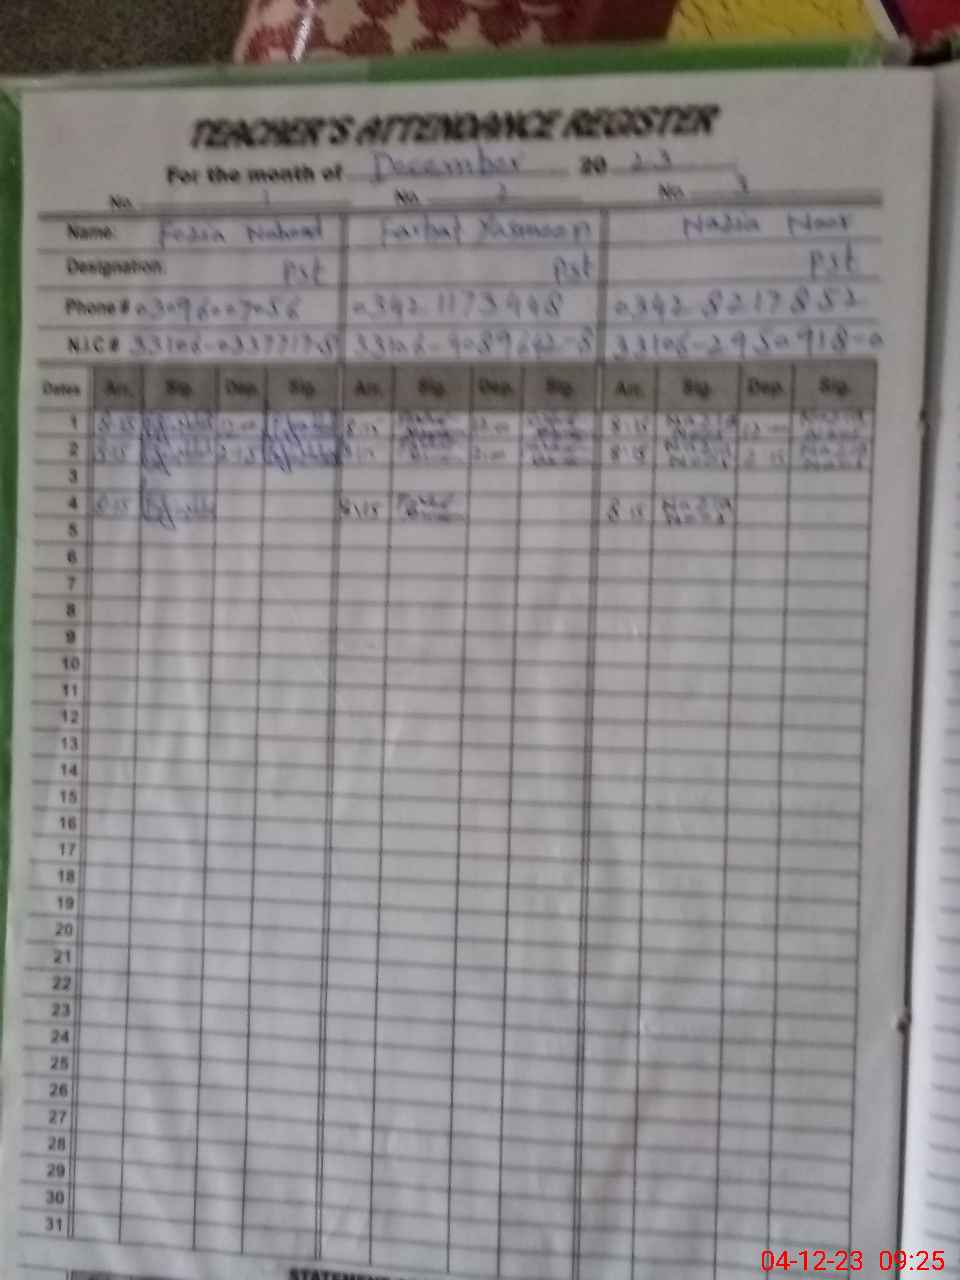 TEACHER'S ATTENDANCE REGISTER
For the month of December 20 23
No. 1 No. 2 No. 3
Name: Fozia Naheed Farhat Yasmeen Nazia Noor
Designation: Pst Pst Pst
Phone # 03096007056 0342 1173448 0342 8217852
N.I.C # 33106-0337717-8 33106-4089642-8 33106-2950918-0
Dates Arr. Sig. Dep. Sig. Arr. Sig. Dep. Sig. Arr. Sig. Dep. Sig.
1 8:15 12:00 8:15 12:00 8:15 Nazia 12:00 Nazia
2 8:15 2:15 8:15 2:00 8:15 Nazia 2:15 Nazia
3
4 8:15 8:15 8:15 Nazia
5
6
7
8
9
10
11
12
13
14
15
16
17
18
19
20
21
22
23
24
25
26
27
28
29
30
31
STATEMENT
04-12-23 09:25